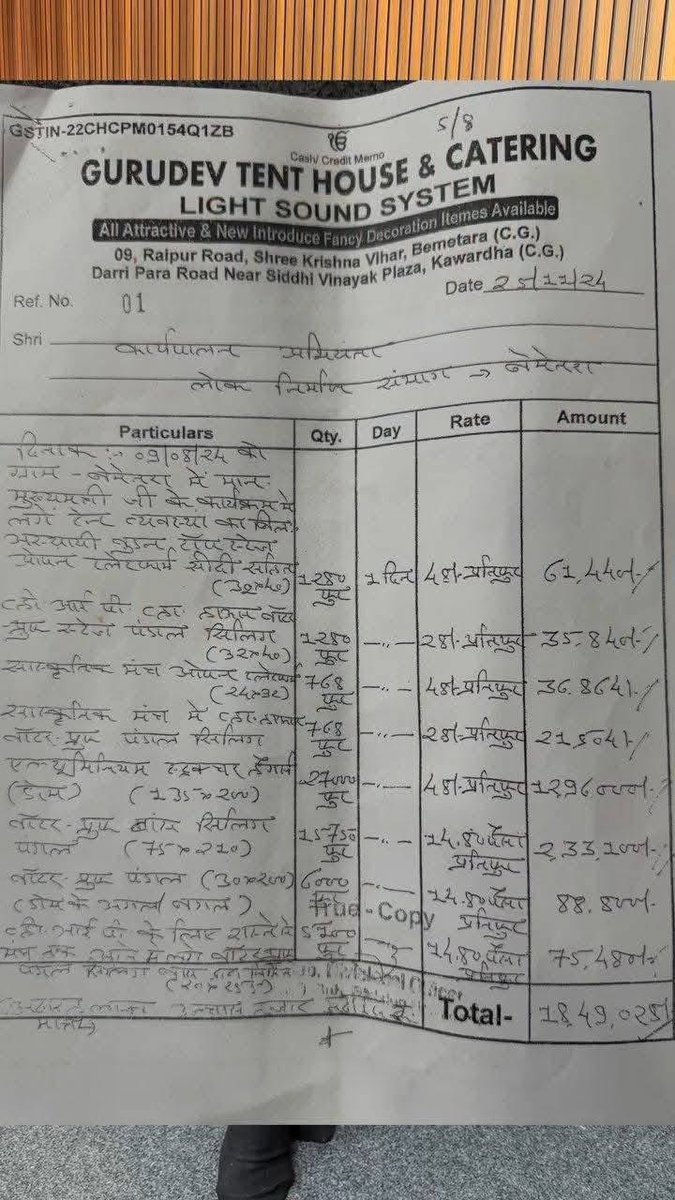 GSTIN-22CHCPM0154Q1ZB
5/8
ੴ
Cash/ Credit Memo
GURUDEV TENT HOUSE & CATERING
LIGHT SOUND SYSTEM
All Attractive & New Introduce Fancy Decoration Itemes Available
09, Raipur Road, Shree Krishna Vihar, Bemetara (C.G.)
Darri Para Road Near Siddhi Vinayak Plaza, Kawardha (C.G.)
Ref. No. 01 Date 25/11/24
Shri कार्यपालन अभियंता
लोक निर्माण संभाग → बेमेतरा
Particulars Qty. Day Rate Amount
दिनांक :- 09/08/24 को
ग्राम - बेमेतरा में मान.
मुख्यमंत्री जी के कार्यक्रम में
लगे टेन्ट व्यवस्था का बिल.
अस्थायी वुडन टॉप स्टेज
ओपन प्लेटफार्म सीढी सहित
(30×40) 1280 फुट 1 दिन 48/-प्रतिफुट 61,440/-
व्ही आई पी व्हा. लाजर वॉटर
प्रुफ स्टेज पंडाल सिलिंग
(32×40) 1280 फुट -..- 28/-प्रतिफुट 35,840/-
सांस्कृतिक मंच ओपन प्लेटफार्म
(24×32) 768 फुट -..- 48/-प्रतिफुट 36,864/-
सांस्कृतिक मंच में
वॉटर-प्रुफ पंडाल सिलिंग 768 फुट -..- 28/-प्रतिफुट 21,504/-
एल्यूमिनियम स्ट्रक्चर हैंगर
(डोम) (135×200) 27000 फुट -..- 48/-प्रतिफुट 1296000/-
वॉटर-प्रुफ सिलिंग
पंडाल (75×210) 15750 फुट -..- 14.80 पैसा प्रतिफुट 2,33,100/-
वॉटर-प्रुफ पंडाल (30×200)
(डोम के अगल बगल) 6000 फुट -..- 14.80 पैसा प्रतिफुट 88,800/-
True-Copy
व्ही आई पी के लिए रास्ते से
मंच तक आने में लगे वॉटर प्रुफ
पंडाल सिलिंग 5100 फुट -..- 14.80 पैसा प्रतिफुट 75,480/-
हजार
मात्र Total- 18,49,028/-